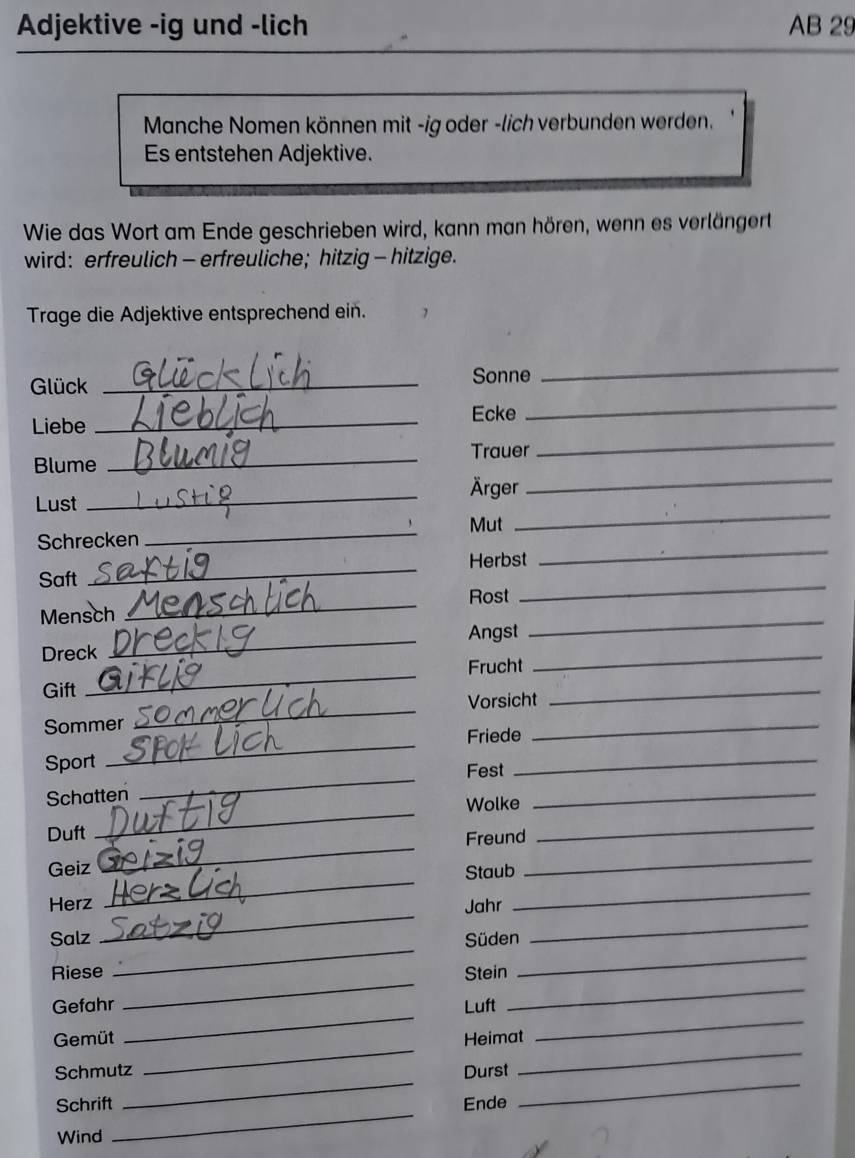 Adjektive -ig und -lich AB 29
Manche Nomen können mit -ig oder -lich verbunden werden.
Es entstehen Adjektive.
Wie das Wort am Ende geschrieben wird, kann man hören, wenn es verlängert
wird: erfreulich – erfreuliche; hitzig – hitzige.
Trage die Adjektive entsprechend ein.
Glück Glücklich
Liebe Lieblich
Blume Blumig
Lust Lustig
Schrecken
Saft saftig
Mensch Menschlich
Dreck Dreckig
Gift Giflig
Sommer sommerlich
Sport Sportlich
Schatten
Duft Duftig
Geiz Geizig
Herz Herzlich
Salz Satzig
Riese
Gefahr
Gemüt
Schmutz
Schrift
Wind
Sonne
Ecke
Trauer
Ärger
Mut
Herbst
Rost
Angst
Frucht
Vorsicht
Friede
Fest
Wolke
Freund
Staub
Jahr
Süden
Stein
Luft
Heimat
Durst
Ende